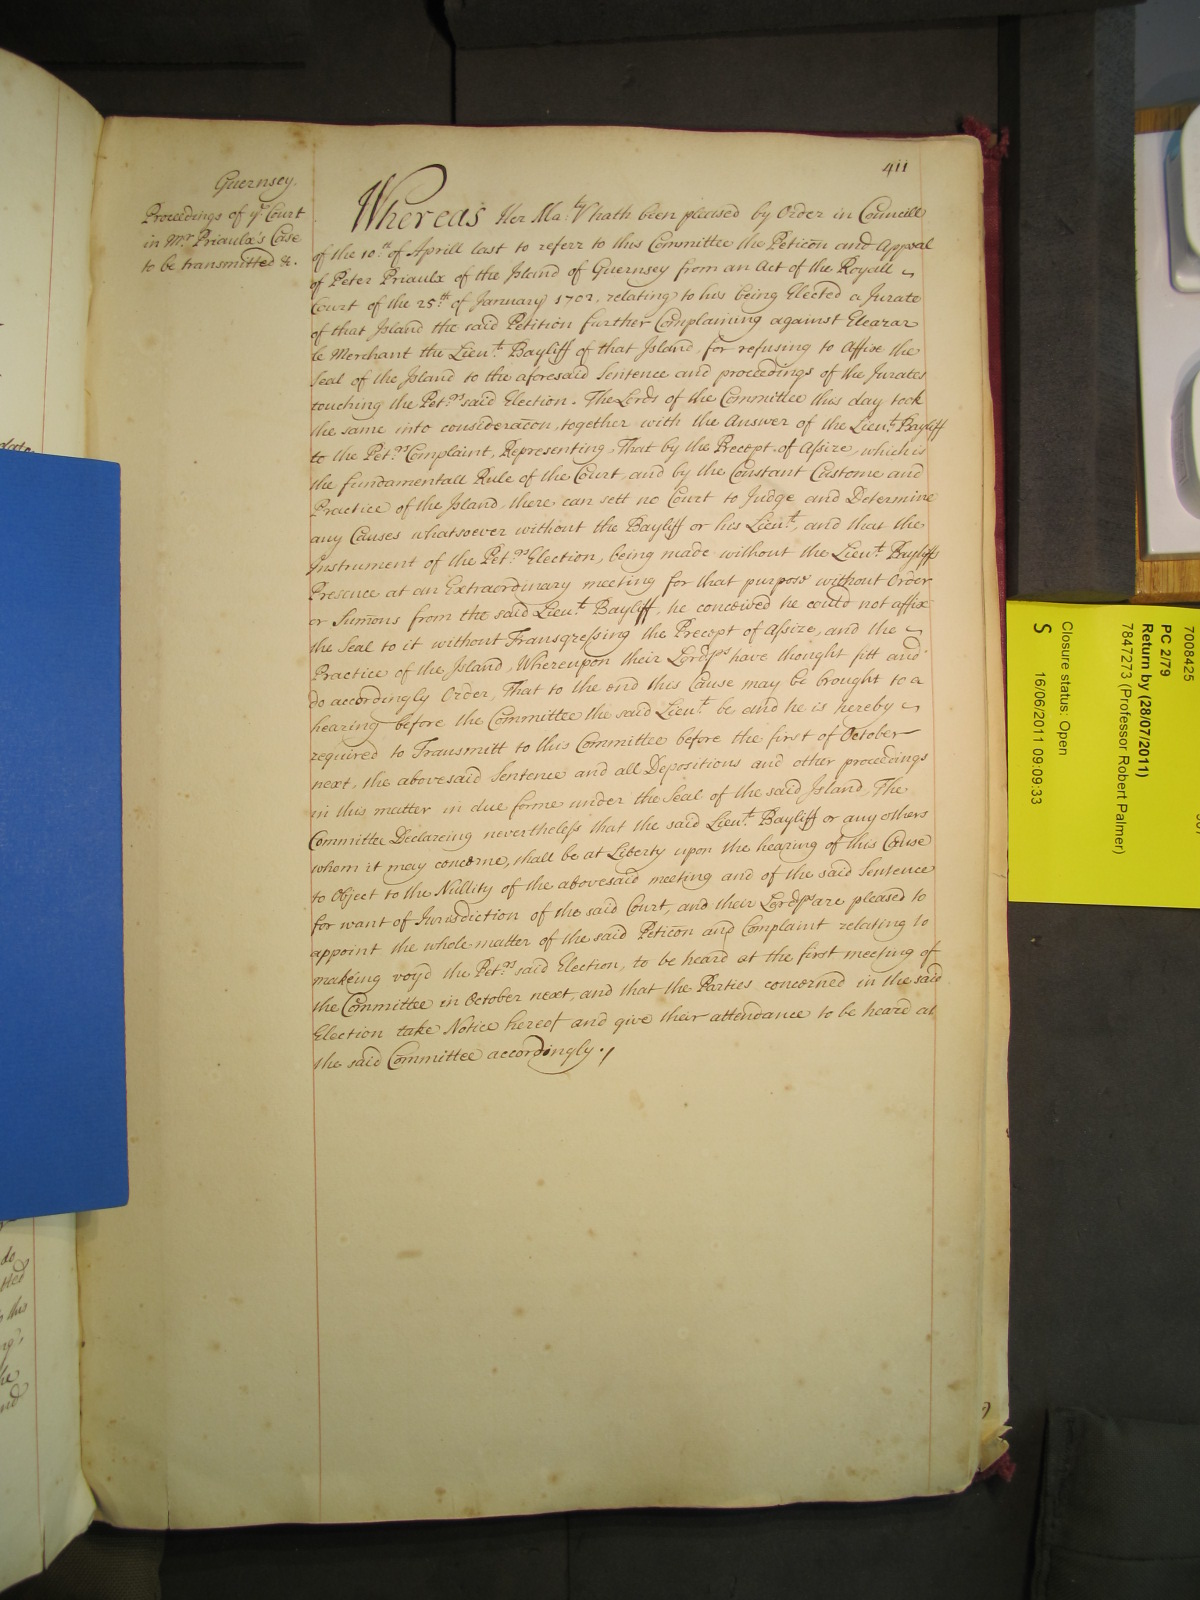 411
Guernsey.
Proceedings of ye. Court
in Mr. Priaulx's Case
to be transmitted &.
Whereas Her Ma:ty hath been pleased by Order in Councill
of the 10th of Aprill last to referr to this Committee the Peticõn and Appeal
of Peter Priaulx of the Island of Guernsey from an Act of the Royall
Court of the 25th of January 1702, relating to his being Elected a Jurate
of that Island the said Petition further Complaining against Eleazar
le Merchant the Lieut. Bayliff of that Island, for refusing to Affixe the
Seal of the Island to the aforesaid Sentence and proceedings of the Jurates
touching the Petrs. said Election. The Lords of the Committee this day took
the same into consideracõn, together with the Answer of the Lieut. Bayliff
to the Petrs. Complaint, Representing, That by the Precept of Assize, which is
the fundamentall Rule of the Court, and by the Constant Custome and
Practice of the Island, there can sett no Court to Judge and Determine
any Causes whatsoever without the Bayliff or his Lieut., and that the
Instrument of the Petrs. Election, being made without the Lieut. Bayliffs
Presence at an Extraordinary meeting for that purpose without Order
or Sumõns from the said Lieut. Bayliff, he conceived he could not affix
the Seal to it without Transgressing the Precept of Assize, and the
Practice of the Island, Whereupon their Lordps have thought fitt and
do accordingly Order, That to the end this Cause may be brought to a
hearing before the Committee the said Lieut. be and he is hereby
required to Transmitt to this Committee before the first of October
next, the abovesaid Sentence and all Depositions and other proceedings
in this matter in due forme under the Seal of the said Island, The
Committee Declareing nevertheless that the said Lieut. Bayliff or any others
whom it may concerne, shall be at Liberty upon the hearing of this Cause
to Object to the Nullity of the abovesaid meeting and of the said Sentence
for want of Jurisdiction of the said Court, and their Lordps are pleased to
appoint the whole matter of the said Peticõn and Complaint relating to
makeing voyd the Petrs. said Election, to be heard at the first meeting of
the Committee in October next, and that the Parties concerned in the said
Election take Notice hereof and give their attendance to be heard at
the said Committee accordingly.
7008425
PC 2/79
Return by (28/07/2011)
7847273 (Professor Robert Palmer)
Closure status: Open
S 16/06/2011 09:09:33